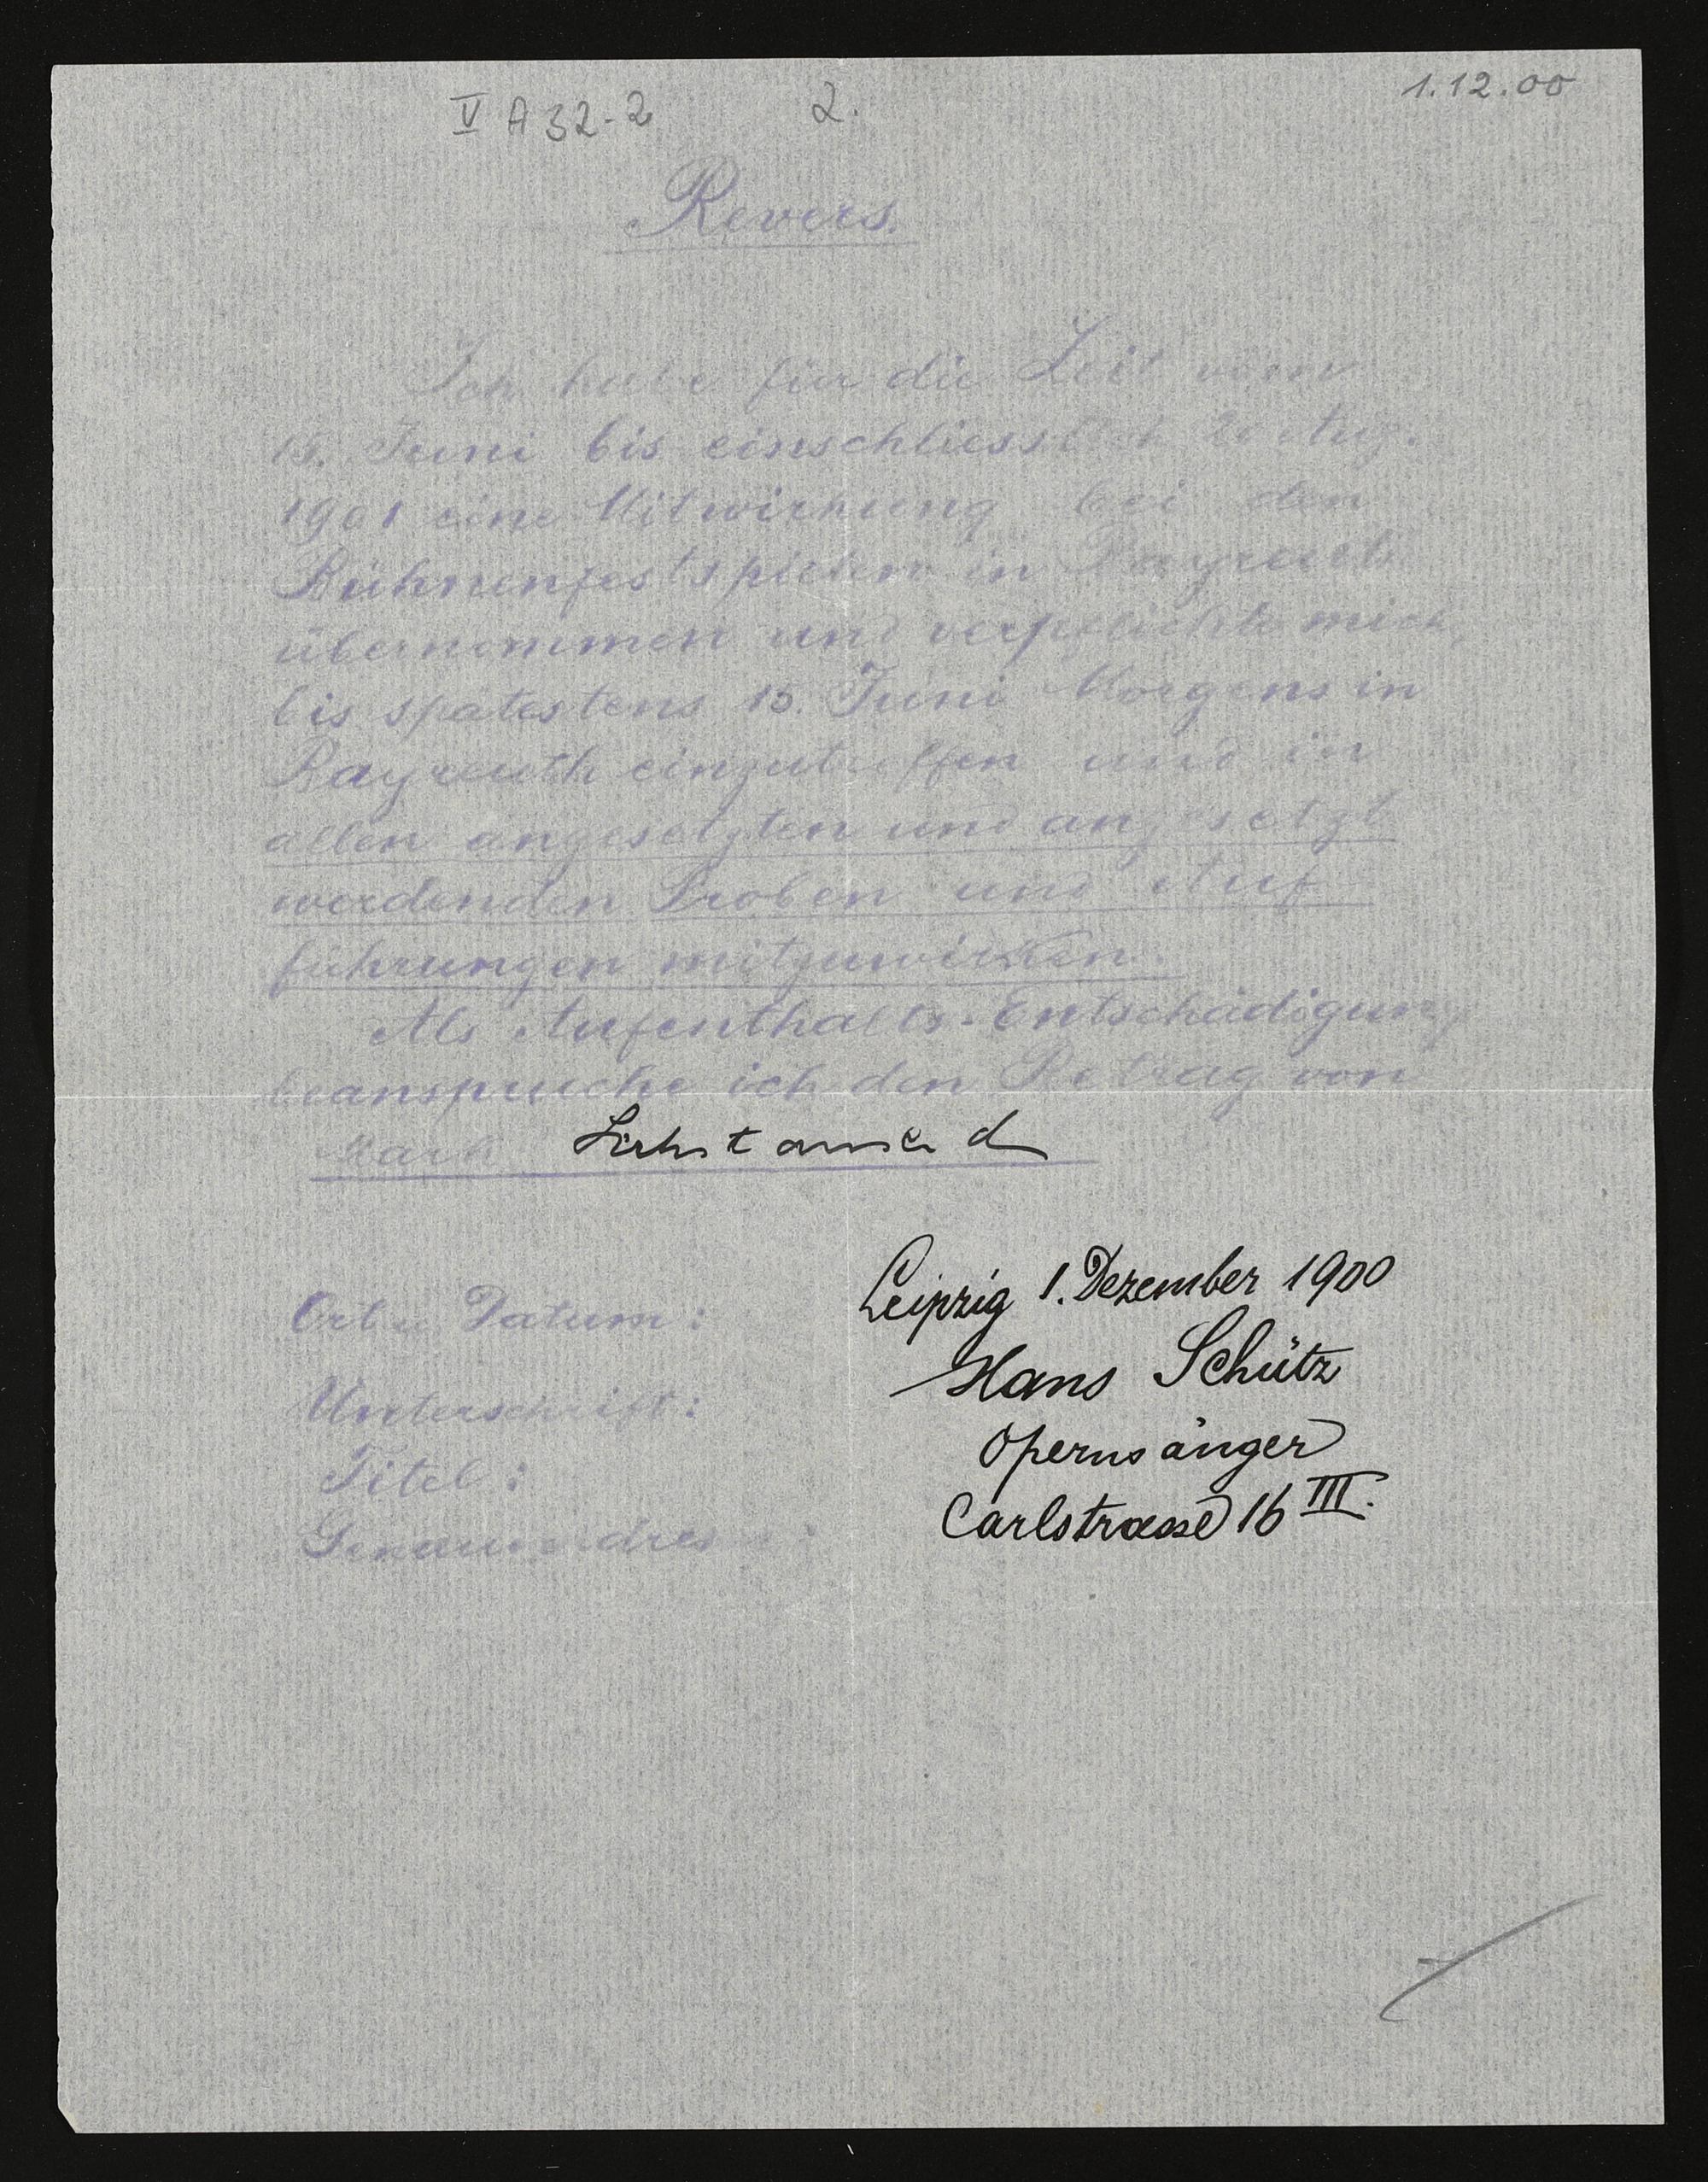 V A 32-2 2. 1.12.00
Revers.
Ich habe für die Zeit vom
15. Juni bis einschliesslich 20 Aug.
1901 eine Mitwirkung bei den
Bühnenfestspielen in Bayreuth
übernommen und verpflichte mich,
bis spätestens 15. Juni Morgens in
Bayreuth einzutreffen und in
allen angesetzten und angesetzt
werdenden Proben und Auf
führungen mitzuwirken.
Als Aufenthalts-Entschädigung
beanspruche ich den Betrag von
Mark
Ort u Datum: Leipzig 1. Dezember 1900
Unterschrift: Hans Schütz
Titel: Opernsänger
Genaue Adresse: Carlstrasse 16 III.